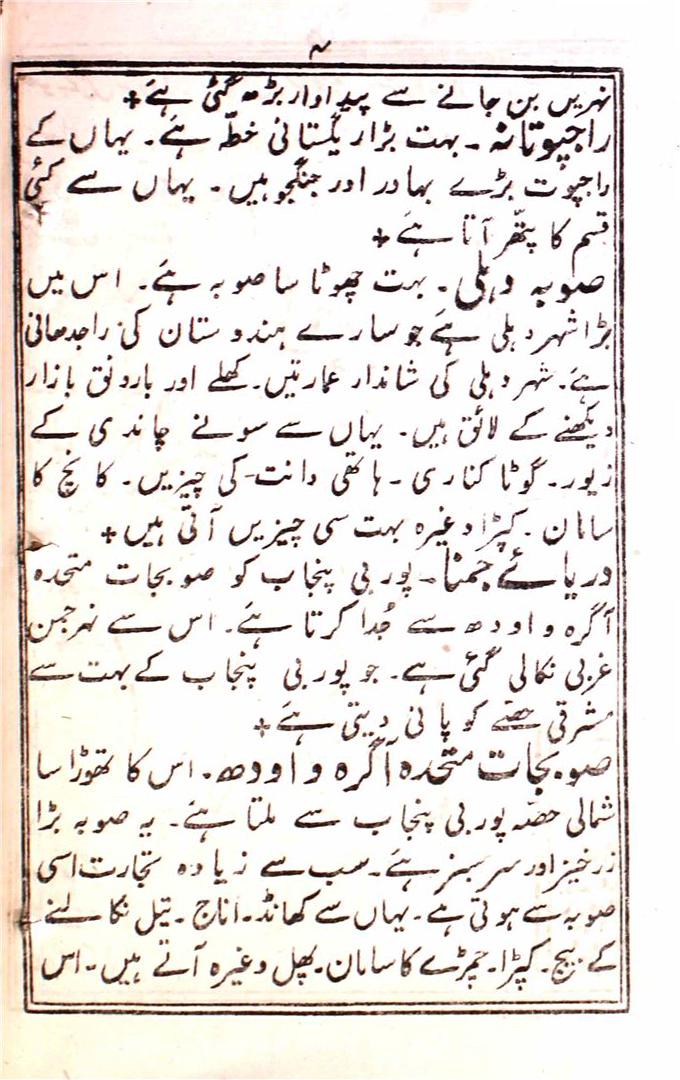 ۷
نہریں بن جانے سے پیداوار بڑھ گئی ہے+
راجپوتانہ۔ بہت بڑا ریگستانی خطّہ ہے۔ یہاں کے
راجپوت بڑے بہادر اور جنگجو ہیں۔ یہاں سے کئی
قسم کا پتھّر آتا ہے+
صوبہ دہلی۔ بہت چھوٹا سا صوبہ ہے۔ اس میں
بڑا شہر دہلی ہے جو سارے ہندوستان کی راجدھانی
ہے۔ شہر دہلی کی شاندار عمارتیں۔ کھلے اور بارونق بازار
دیکھنے کے لائق ہیں۔ یہاں سے سونے چاندی کے
زیور۔ گوٹا کناری۔ ہاتھی دانت کی چیزیں۔ کانچ کا
سامان۔ کپڑا وغیرہ بہت سی چیزیں آتی ہیں+
دریائے جمنا۔ پوربی پنجاب کو صوبجات متحدہ
آگرہ و اودھ سے جُدا کرتا ہے۔ اس سے نہر جمن
غربی نکالی گئی ہے۔ جو پوربی پنجاب کے بہت سے
مشرقی حصّے کو پانی دیتی ہے+
صوبجات متحدہ آگرہ و اودھ۔ اس کا تھوڑا سا
شمالی حصّہ پوربی پنجاب سے ملتا ہے۔ یہ صوبہ بڑا
زرخیز اور سرسبز ہے۔ سب سے زیادہ تجارت اسی
صوبہ سے ہوتی ہے۔ یہاں سے کھانڈ۔ اناج۔ تیل نکالنے
کے بیج۔ کپڑا۔ چمڑے کا سامان۔ پھل وغیرہ آتے ہیں۔ اس